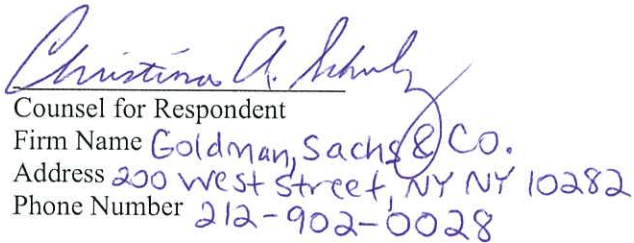 Christina A. Schulz
Counsel for Respondent
Firm Name Goldman, Sachs & Co.
Address 200 West Street, NY NY 10282
Phone Number 212-902-0028